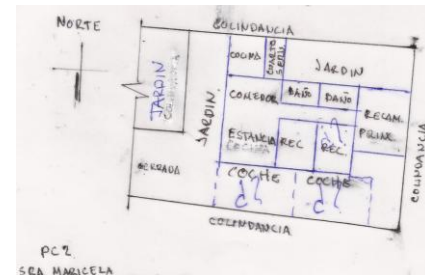 NORTE
COLINDANCIA
COCINA
CUARTO
SERV.
JARDIN
JARDIN
JARDIN
COMEDOR
BAÑO
BAÑO
RECAM.
PRINC.
ESTANCIA
REC.
REC.
CERRADA
COCHE
COCHE
COLINDANCIA
COLINDANCIA
PC2
SRA MARICELA